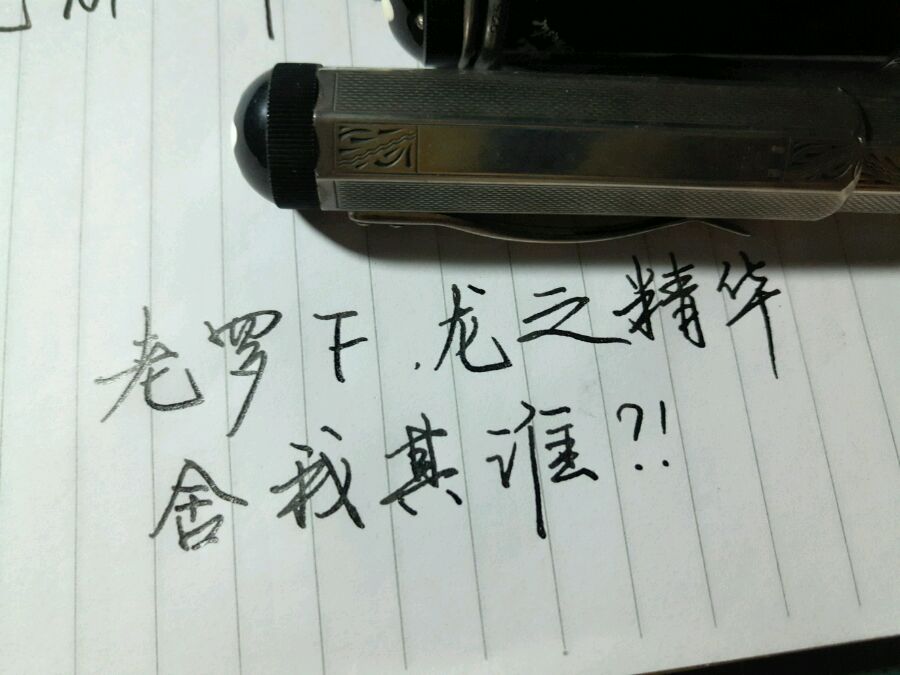 老罗下.龙之精华
舍我其谁?!